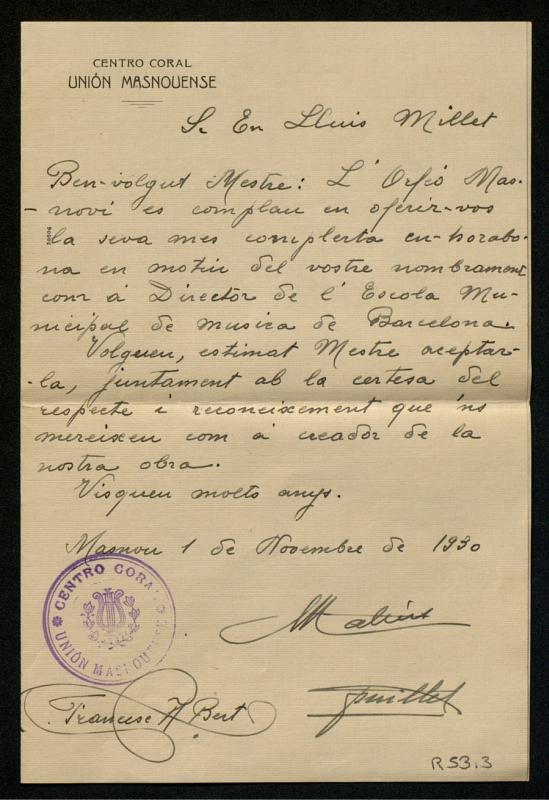 CENTRO CORAL
UNIÓN MASNOUENSE
Sr En Lluis Millet
Ben-volgut Mestre: L' Orfeó Mas-
-noví es complau en oferir-vos
la seva mes complerta en-horabo-
na en motiu del vostre nombrament
com á Director de l' Escola Mu-
nicipal de musica de Barcelona.
Volgueu, estimat Mestre aceptar-
-la, juntament ab la certesa del
respecte i reconeixement que 'ns
mereixeu com á creador de la
nostra obra.
Visqueu molts anys.
Masnou 1 de Novembre de 1930
CENTRO CORAL
UNIÓN MASNOUENSE
Francesc A Bert
R 53.3